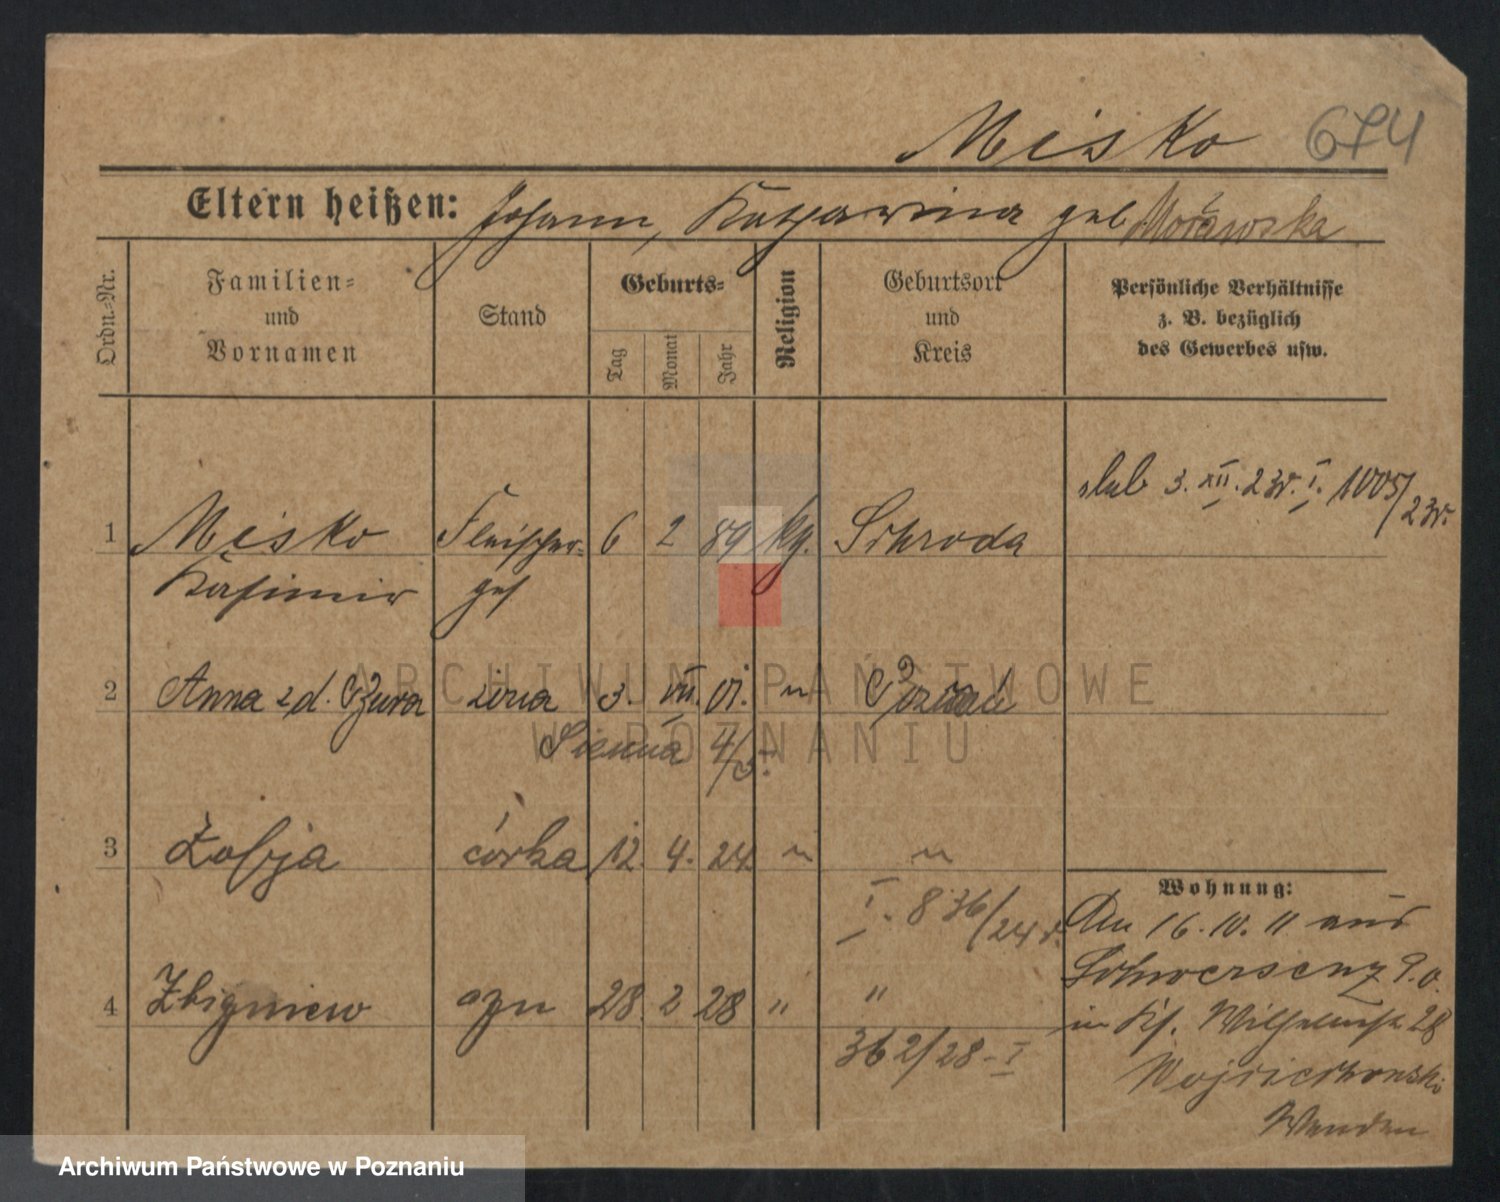 Misko 674
Eltern heißen: Johann, Katharina geb Morawska
Ordn.-Nr.
Familien-
und
Vornamen
Stand
Geburts-
Tag
Monat
Jahr
Religion
Geburtsort
und
Kreis
Persönliche Verhältnisse
z. B. bezüglich
des Gewerbes usw.
ślub 3. XII. 23r. I. 1005/23r.
1 Misko Fleischer- 6 2 89 kg. Schroda
Kasimir ges
2 Anna z d. Gżura żona 3. VII. 01. " Poznań
Sienna 4/5.
3 Zofja córka 12. 4. 24. " "
I. 836/24 r.
4 Zbigniew syn 28. 2 28 " "
362/28-I
Wohnung:
Am 16.10.11 aus
Schwersenz P.O.
in Kf. Wilhelmstr. 28
Wojciechowski
Wenden
ARCHIWUM PAŃSTWOWE
W POZNANIU
Archiwum Państwowe w Poznaniu